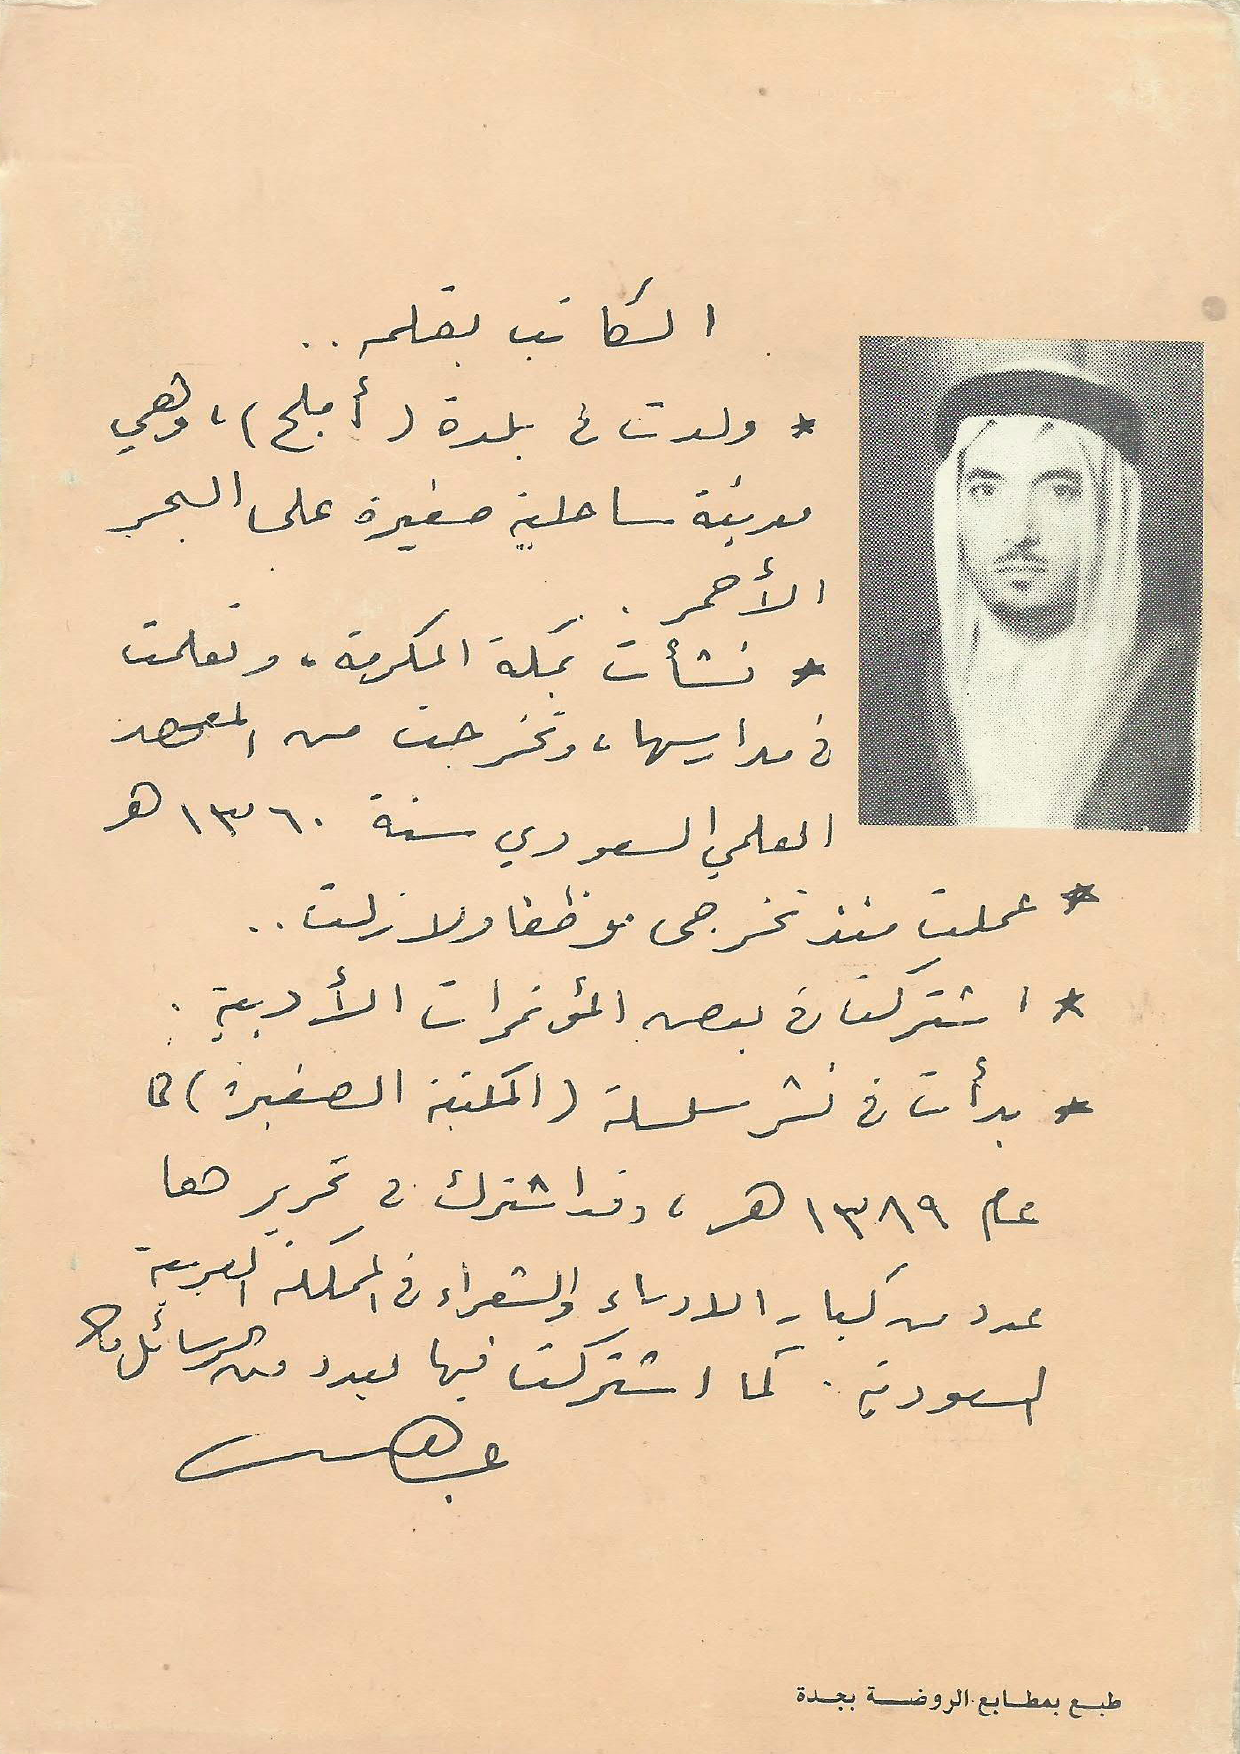 الكاتب بقلمه ..
* ولدت في بلدة ( أملج ) ، وهي
مدينة ساحلية صغيرة على البحر
الأحمر .
* نشأت بمكة المكرمة ، وتعلمت
في مدارسها ، وتخرجت من المعهد
العلمي السعودي سنة ١٣٦٠ هـ
* عملت منذ تخرجى موظفا ولازلت ..
* اشتركت في بعض المؤتمرات الأدبية .
* بدأت في نشر سلسلة ( المكتبة الصغيرة )
عام ١٣٨٩ هـ ، وقد اشترك في تحريرها
عدد من كبار الادباء والشعراء في المملكة العربية
السعودية . كما اشتركت فيها بعدد من الرسائل
طبع بمطابع الروضة بجدة